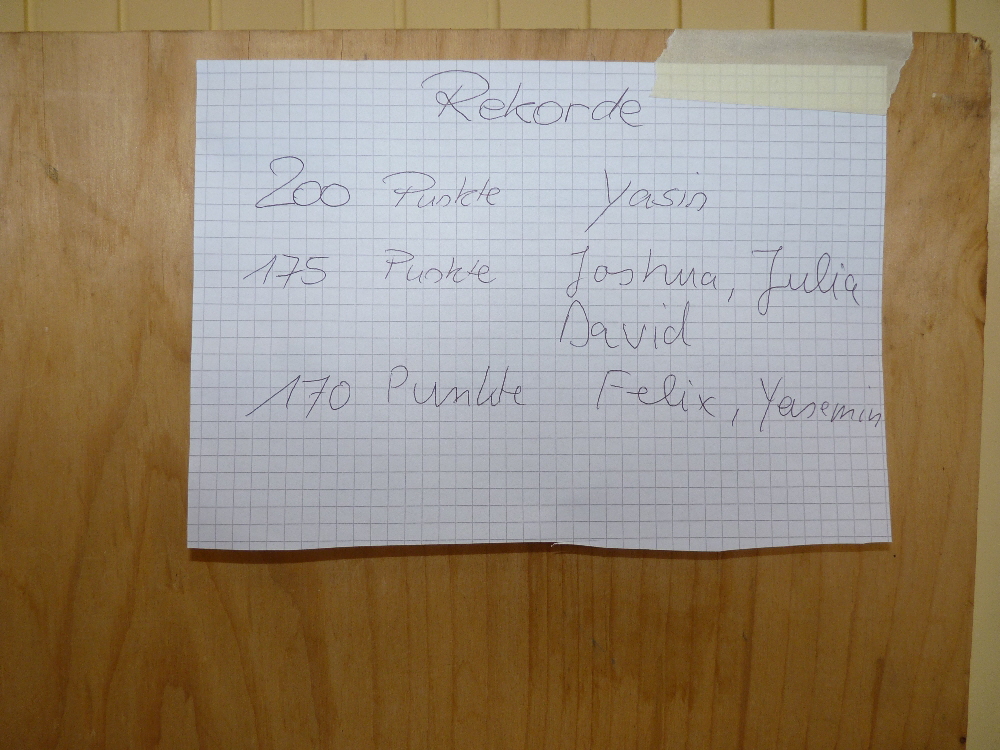 Rekorde
200 Punkte Yasin
175 Punkte Joshua, Julia
David
170 Punkte Felix, Yasemin